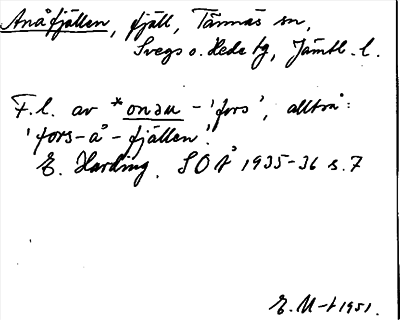 Anåfjällen, fjäll, Tännäs sn,
Svegs o. Hede tg, Jämtl. l.
F.l. av *onəu - 'fors', alltså:
'fors-å-fjällen'.
E. Harding. SOÅ 1935-36 s. 7
E. M-t 1951.